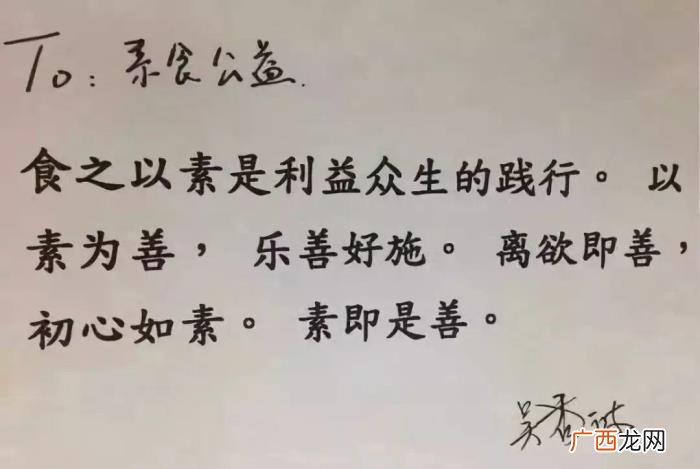 To: 素食公益.
食之以素是利益众生的践行。 以
素为善， 乐善好施。 离欲即善，
初心如素。 素即是善。
吴香
广西龙网